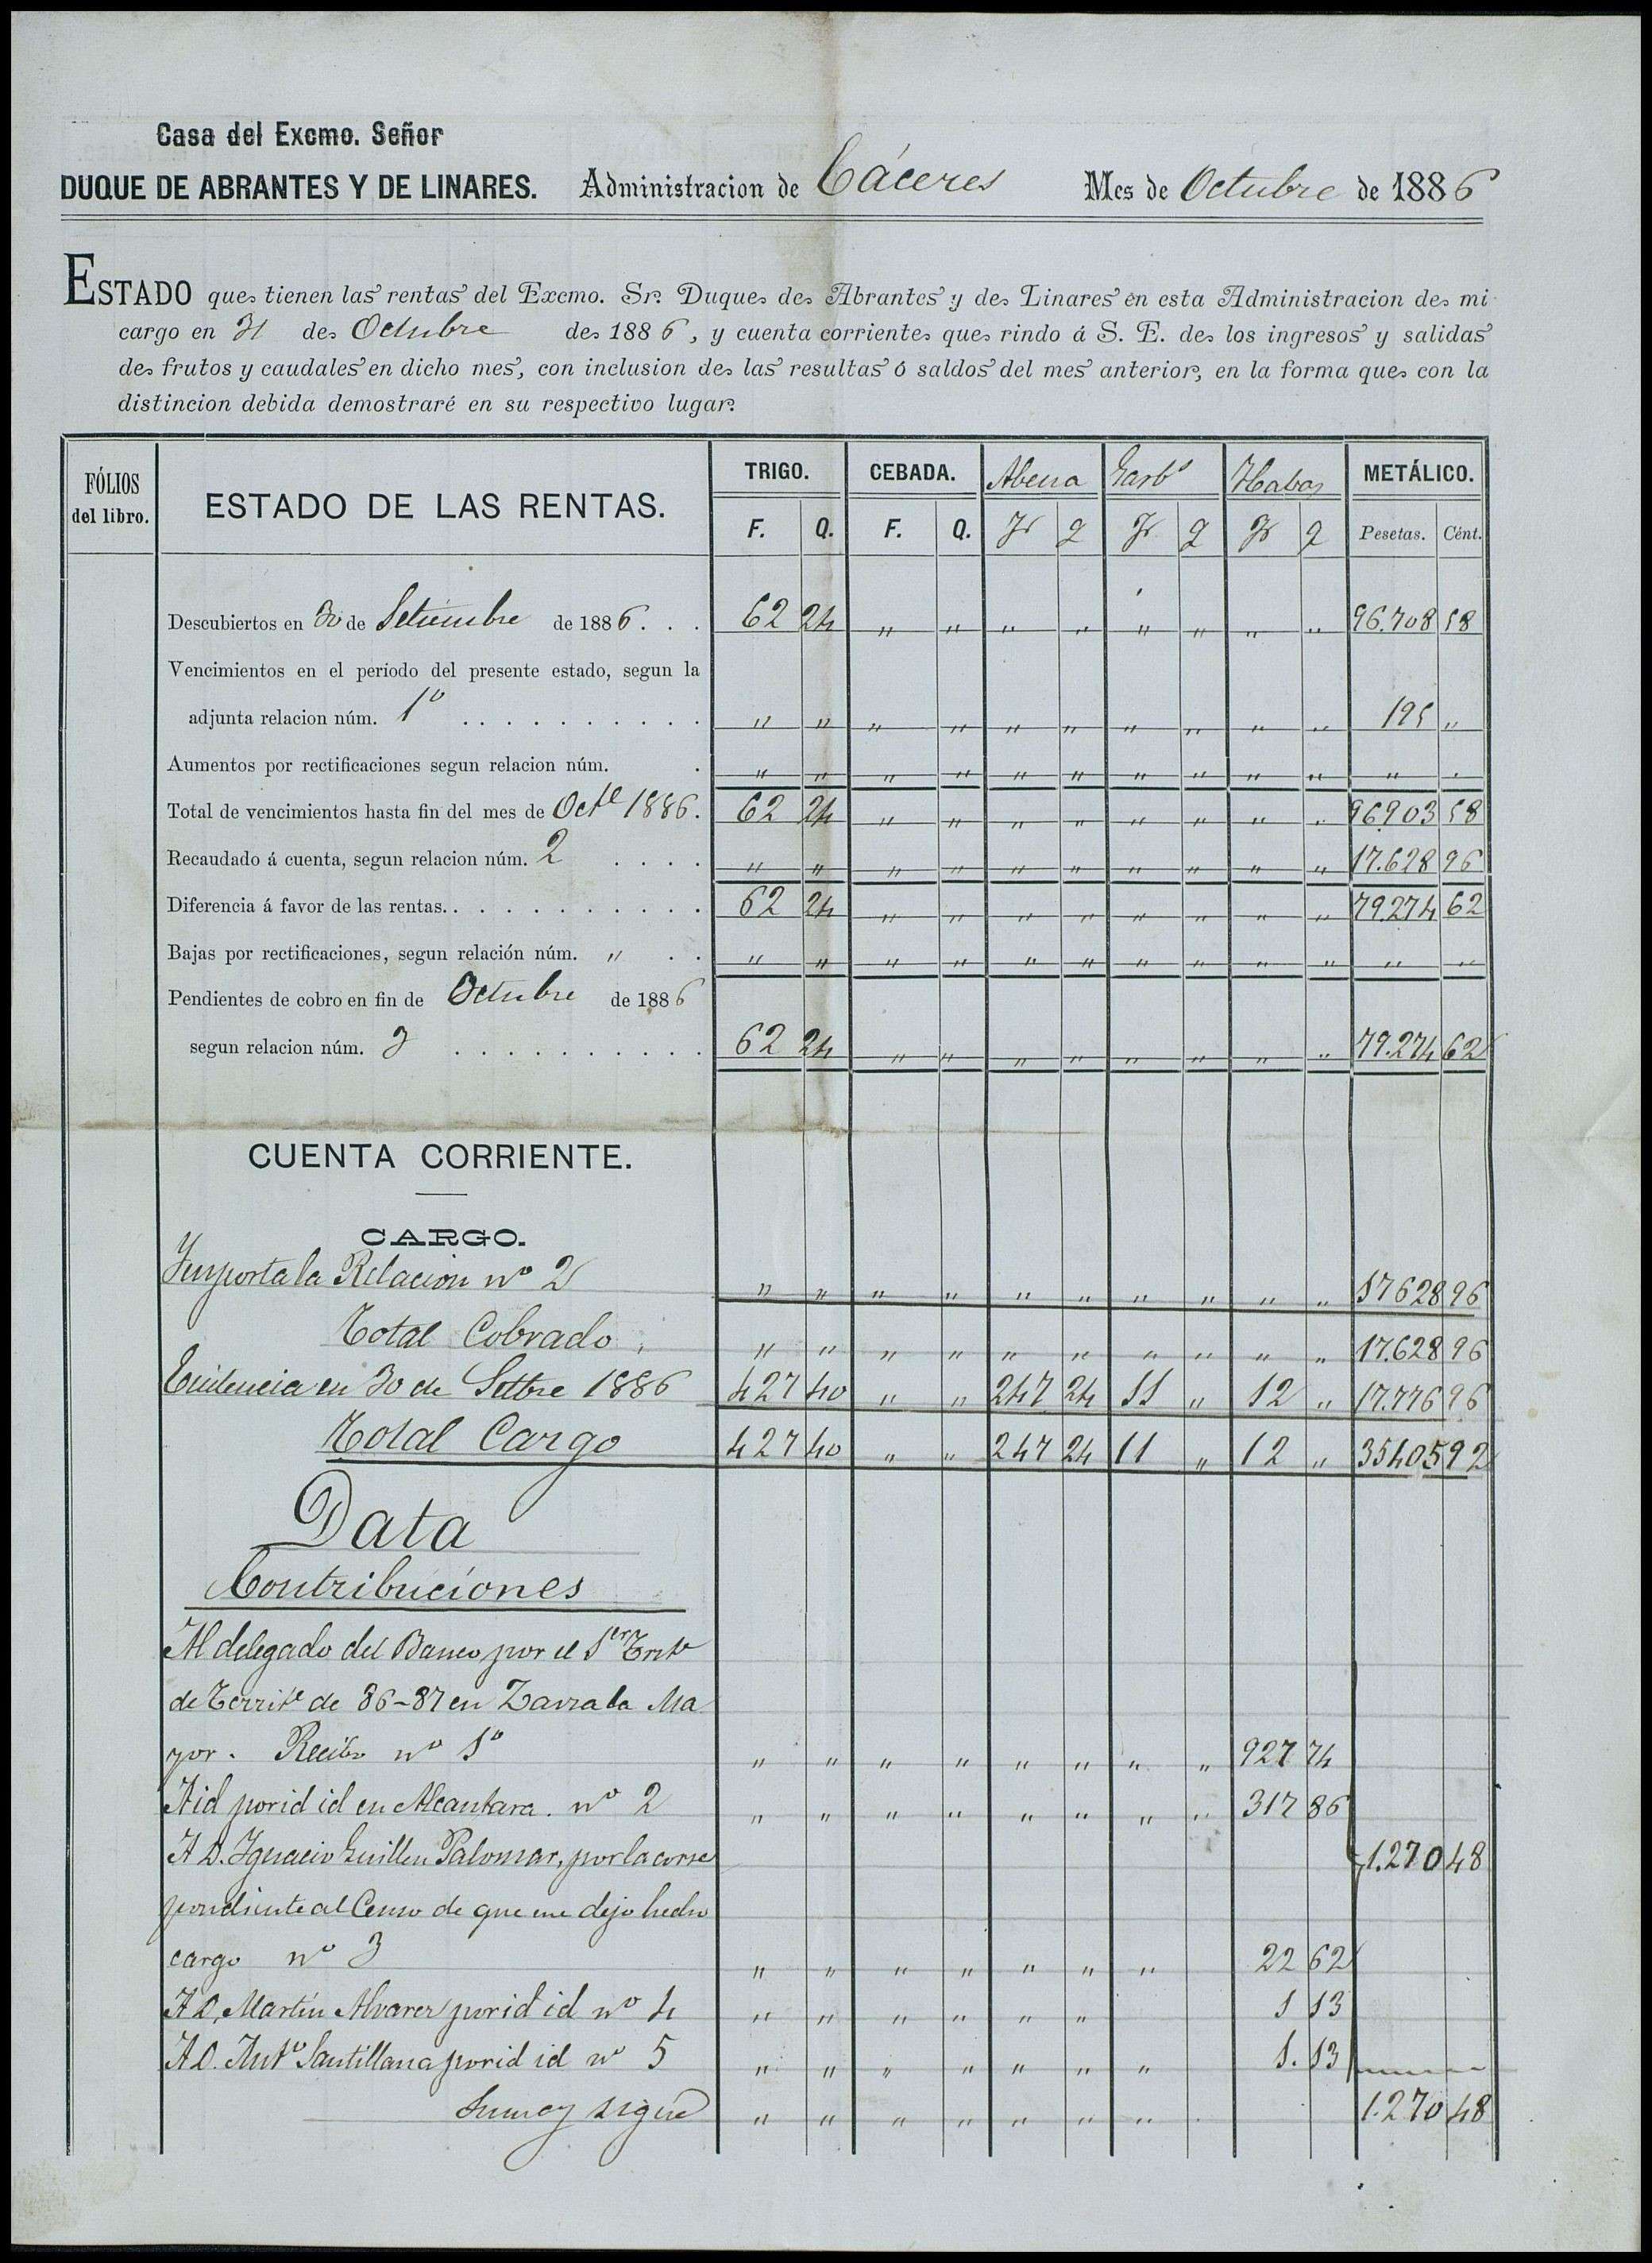 Casa del Excmo. Señor
DUQUE DE ABRANTES Y DE LINARES. Administracion de Cáceres Mes de Octubre de 1886
ESTADO que tienen las rentas del Excmo. Sr. Duque de Abrantes y de Linares en esta Administracion de mi
cargo en 31 de Octubre de 1886, y cuenta corriente que rindo á S. E. de los ingresos y salidas
de frutos y caudales en dicho mes, con inclusion de las resultas ó saldos del mes anterior, en la forma que con la
distincion debida demostraré en su respectivo lugar.
FÓLIOS del libro. ESTADO DE LAS RENTAS. TRIGO. CEBADA. Abena Garbs Habas METÁLICO.
F. Q. F. Q. F q F q F q Pesetas. Cént.
Descubiertos en 30 de Setiembre de 1886. . . 62 24 " " " " " " " " 96.708 58
Vencimientos en el período del presente estado, segun la
adjunta relacion núm. 1º . . . . . . . . . . " " " " " " " " " " 195 "
Aumentos por rectificaciones segun relacion núm. . " " " " " " " " " " " "
Total de vencimientos hasta fin del mes de Octe 1886. 62 24 " " " " " " " " 96903 58
Recaudado á cuenta, segun relacion núm. 2 . . . . " " " " " " " " " " 17.628 96
Diferencia á favor de las rentas. . . . . . . . . . . 62 24 " " " " " " " " 79.274 62
Bajas por rectificaciones, segun relación núm. " . . " " " " " " " " " " " "
Pendientes de cobro en fin de Octubre de 1886
segun relacion núm. 3 . . . . . . . . . . 62 24 " " " " " " " " 79.274 62
CUENTA CORRIENTE.
CARGO.
Importa la Relacion nº 2 " " " " " " " " " " 17628 96
Total Cobrado " " " " " " " " " " 17.628 96
Existencia en 30 de Setbre 1886 427 40 " " 247 24 11 " 12 " 17.776 96
Total Cargo 427 40 " " 247 24 11 " 12 " 35405 92
Data
Contribuciones
Al delegado del Banco por el 1er Trite
de Territe de 86-87 en Zarza la Ma
yor. Recibo nº 1º " " " " " " " " 927 74
A id por id id en Alcantara. nº 2 " " " " " " " " 317 86
A D. Ignacio Guillen Palomar, por la corres 1.270 48
pondiente al Censo de que me dejo hecho
cargo nº 3 " " " " " " " 22 62
A D. Martin Alvarez por id id nº 4 " " " " " " 1 13
A D. Anto Santillana por id id nº 5 " " " " " " " 1. 13
Suma y sigue " " " " " " " 1.270 48